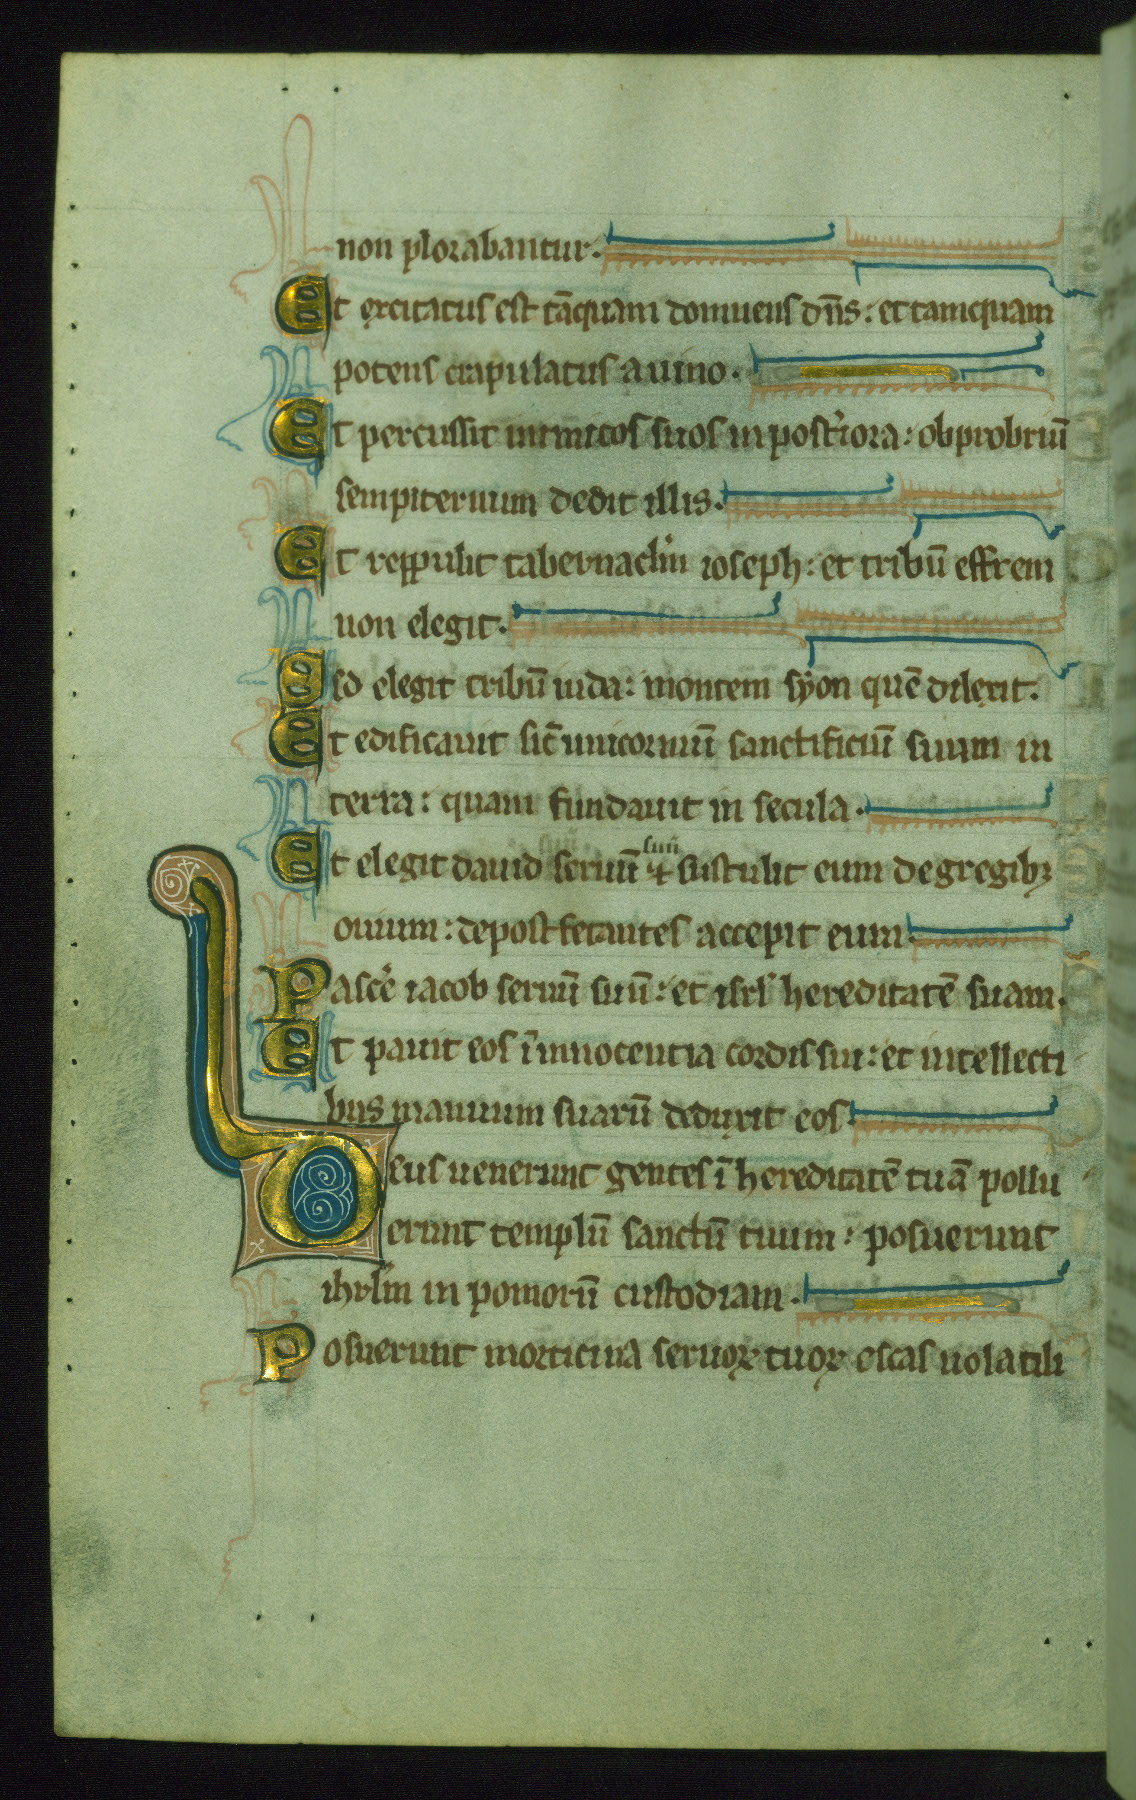 non plorabantur.
Et excitatus est tāquam dormiens dn̄s: et tamquam
potens crapulatus a uino.
Et percussit inimicos suos in post'iora: obprobriū
sempiternum dedit illis.
Et reppulit tabernacl'm ioseph: et tribū effrem
non elegit.
Sed elegit tribū iuda: montem syon quē dilexit.
Et edificauit sic̄ unicorniū sanctificiū suum in
terra: quam fundauit in secula.
Et elegit dauid seruū suū ⁊ sustulit eum de gregibꝫ
ouium: de post fetantes accepit eum.
Pasce͛ iacob seruū suū: et isrl' hereditatē suam.
Et pauit eos ī innocentia cordis sui: et intellecti
bus manuum suarū deduxit eos
Deus uenerunt gentes ī hereditatē tuā pollu
erunt templū sanctū tuum: posuerunt
ihrl'm in pomorū custodiam.
Posuerunt morticina seruoꝝ tuoꝝ escas uolatili